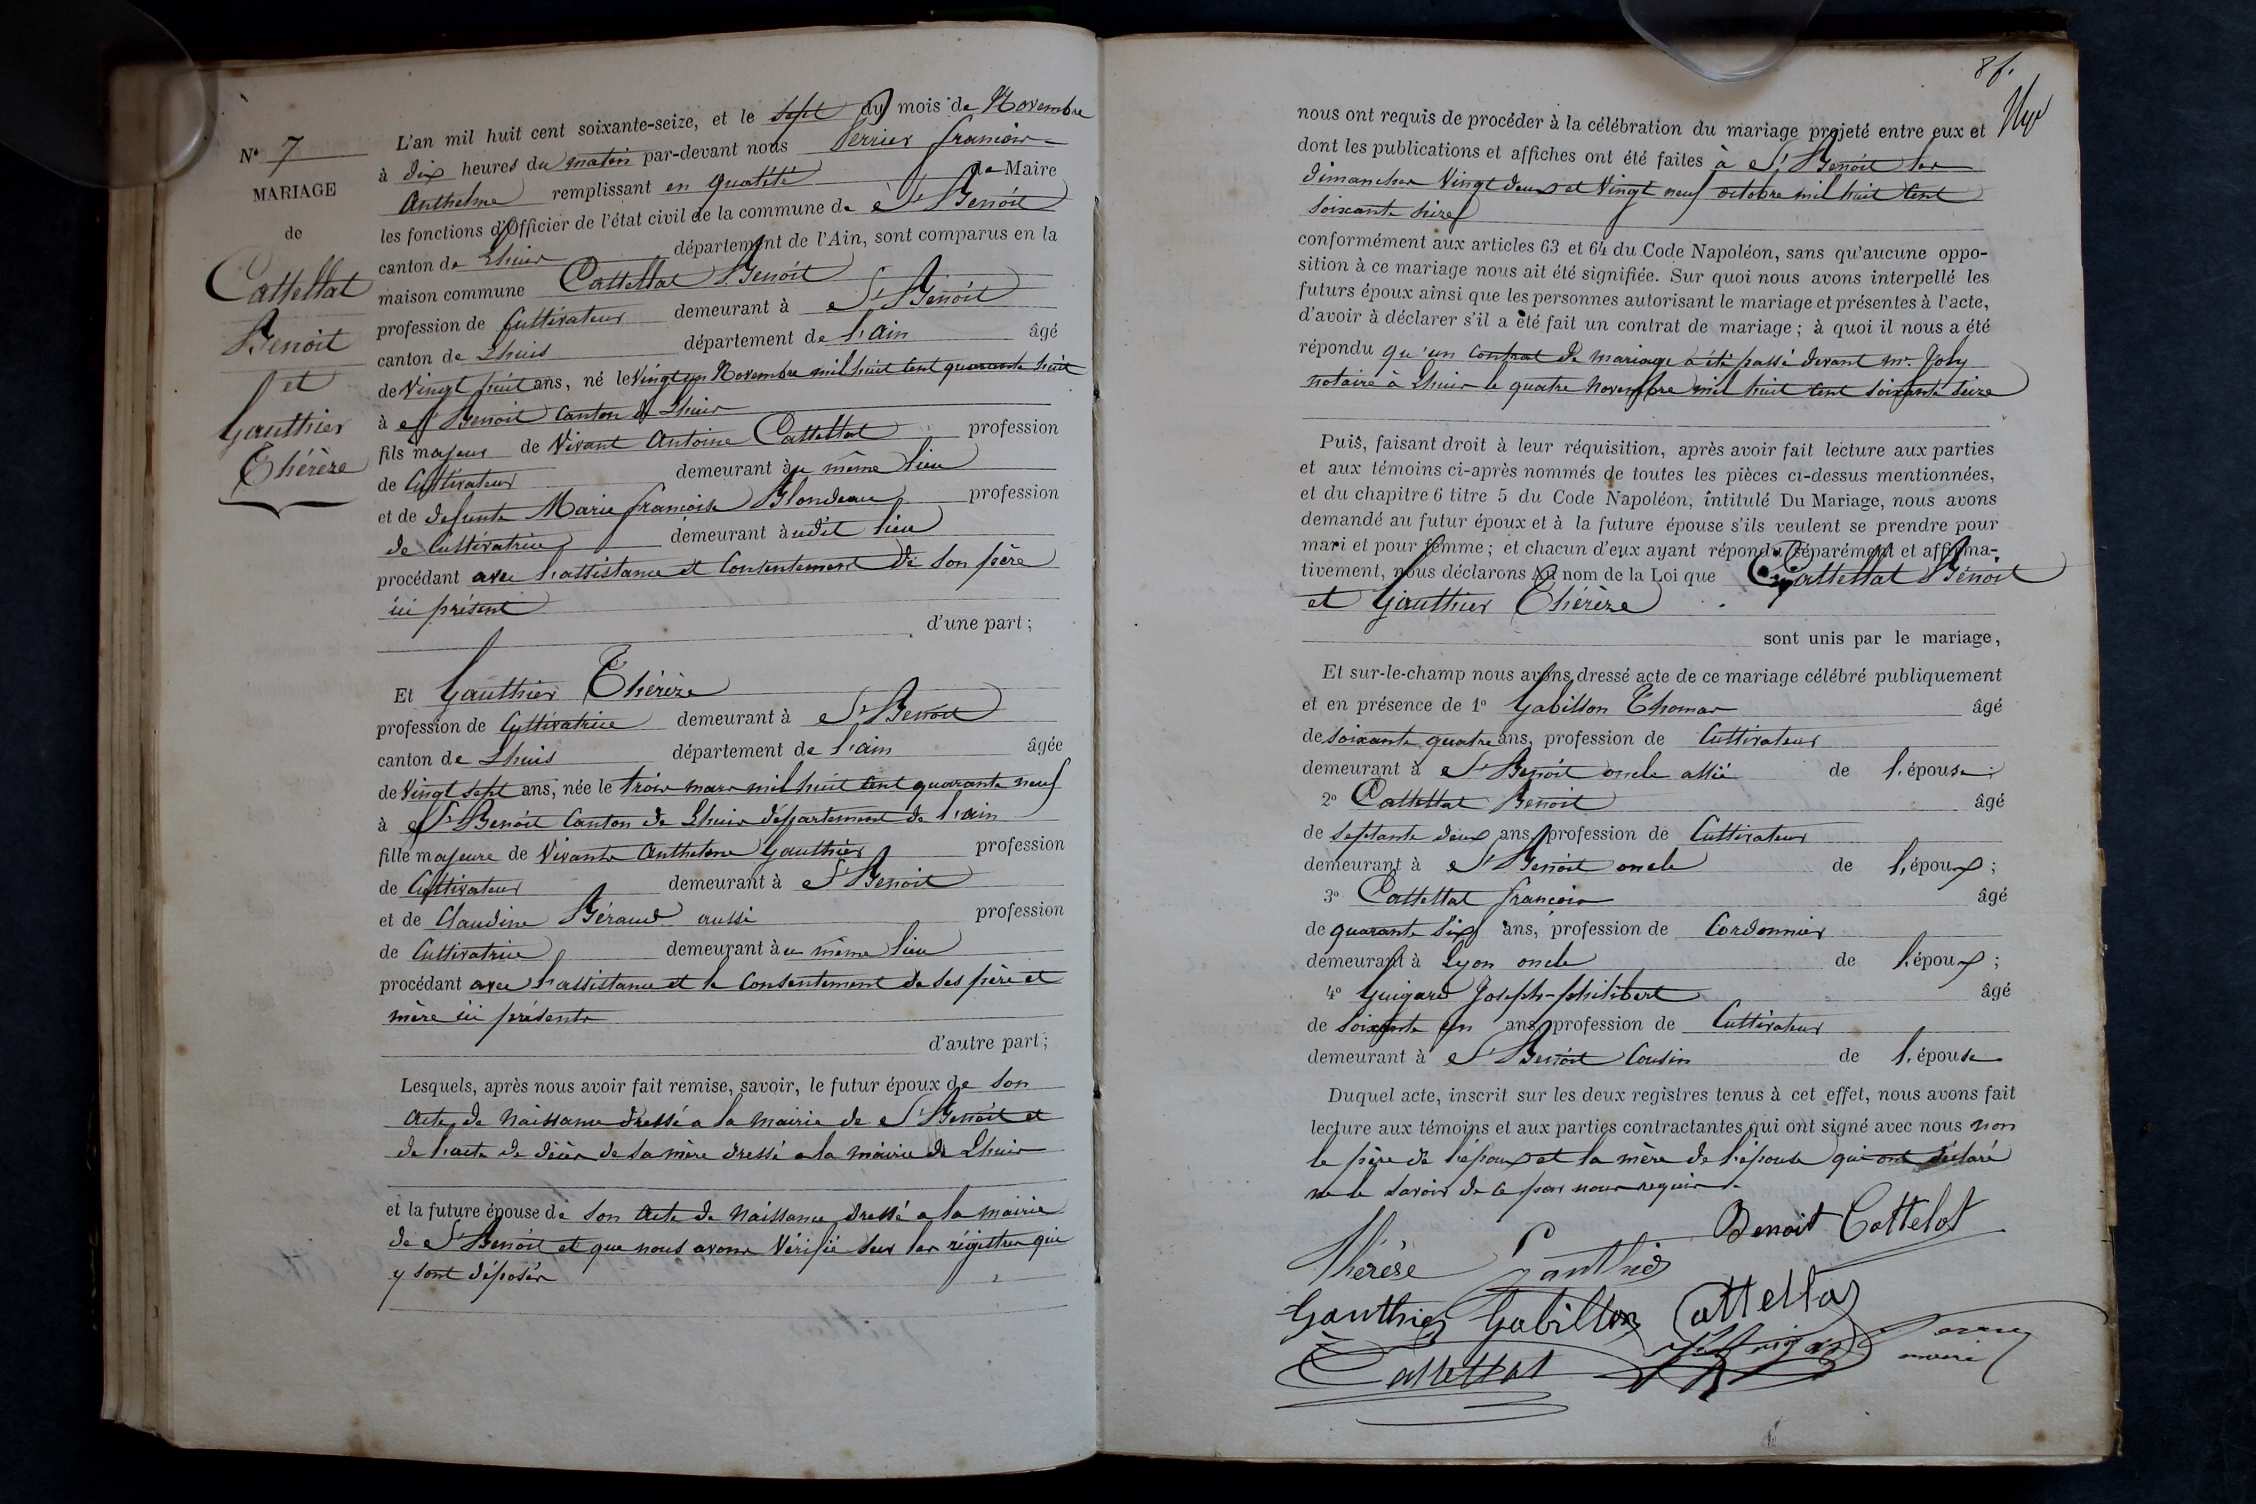 N° 7
MARIAGE
de
Cattellat
Benoit
et
Gauthier
Thérèze
L'an mil huit cent soixante-seize, et le sept du mois de Novembre
à dix heures du matin par-devant nous Perrier françois
Anthelme remplissant en qualité de Maire
les fonctions d'Officier de l'état civil de la commune de St Benoit
canton de Lhuis département de l'Ain, sont comparus en la
maison commune Cattellat Benoit
profession de Cultivateur demeurant à St Benoit
canton de Lhuis département de l'ain âgé
de Vingt huit ans, né le Vingt un Novembre mil huit Cent quarante huit
à St Benoit Canton de Lhuis
fils majeur de Vivant Antoine Cattellat profession
de Cultivateur demeurant à u même lieu
et de defunte Marie françoise Blondeau profession
de Cultivatrice demeurant à udit lieu
procédant avec l'assistance et Consentement de son père
ici présent
d'une part;
Et Gauthier Thérèze
profession de Cultivatrice demeurant à St Benoit
canton de Lhuis département de l'ain âgée
de Vingt sept ans, née le trois mars mil huit Cent quarante neuf
à St Benoit Canton de Lhuis département de l'ain
fille majeure de Vivante Anthelme Gauthier profession
de Cultivateur demeurant à St Benoit
et de Claudine Béraud aussi profession
de Cultivatrice demeurant à u même lieu
procédant avec l'assistance et le Consentement de ses père et
mère ici présents
d'autre part;
Lesquels, après nous avoir fait remise, savoir, le futur époux de son
Acte de Naissance dressé a la mairie de St Benoit et
de l'acte de décès de sa mère dressé a la mairie de Lhuis
et la future épouse de son Acte de Naissance dressé a la mairie
de St Benoit et que nous avons Vérifié sur les régistres qui
y sont déposés
8f.
nous ont requis de procéder à la célébration du mariage projeté entre eux et
dont les publications et affiches ont été faites à St Benoit les
dimanches Vingt deux et Vingt neuf octobre mil huit Cent
soixante seize
conformément aux articles 63 et 64 du Code Napoléon, sans qu'aucune oppo-
sition à ce mariage nous ait été signifiée. Sur quoi nous avons interpellé les
futurs époux ainsi que les personnes autorisant le mariage et présentes à l'acte,
d'avoir à déclarer s'il a été fait un contrat de mariage; à quoi il nous a été
répondu qu'un Contrat de mariage a été passé devant mr. Joly
notaire à Lhuis le quatre Novembre mil huit Cent Soixante Seize
Puis, faisant droit à leur réquisition, après avoir fait lecture aux parties
et aux témoins ci-après nommés de toutes les pièces ci-dessus mentionnées,
et du chapitre 6 titre 5 du Code Napoléon, intitulé Du Mariage, nous avons
demandé au futur époux et à la future épouse s'ils veulent se prendre pour
mari et pour femme; et chacun d'eux ayant répondu séparément et affirma-
tivement, nous déclarons au nom de la Loi que Cattellat Bénoit
et Gauthier Thérèze
sont unis par le mariage,
Et sur-le-champ nous avons dressé acte de ce mariage célébré publiquement
et en présence de 1° Gabillon Thomas âgé
de soixante quatre ans, profession de Cultivateur
demeurant à St Benoit oncle allié de l'épouse;
2° Cattellat Benoit âgé
de septante deux ans, profession de Cultivateur
demeurant à St Benoit oncle de l'époux;
3° Cattellat françois âgé
de quarante Six ans, profession de Cordonnier
demeurant à Lyon oncle de l'époux;
4° Guigard Joseph-philibert âgé
de soixante un ans, profession de Cultivateur
demeurant à St Benoit Cousin de l'épouse
Duquel acte, inscrit sur les deux registres tenus à cet effet, nous avons fait
lecture aux témoins et aux parties contractantes qui ont signé avec nous non
le père de l'époux et la mère de l'épouse qui ont déclaré
ne le savoir de ce par nous requis.
Benoit Cattelat
Thérèse Gauthier
Gauthier Gabillon Cattellat
Cattellat
maire